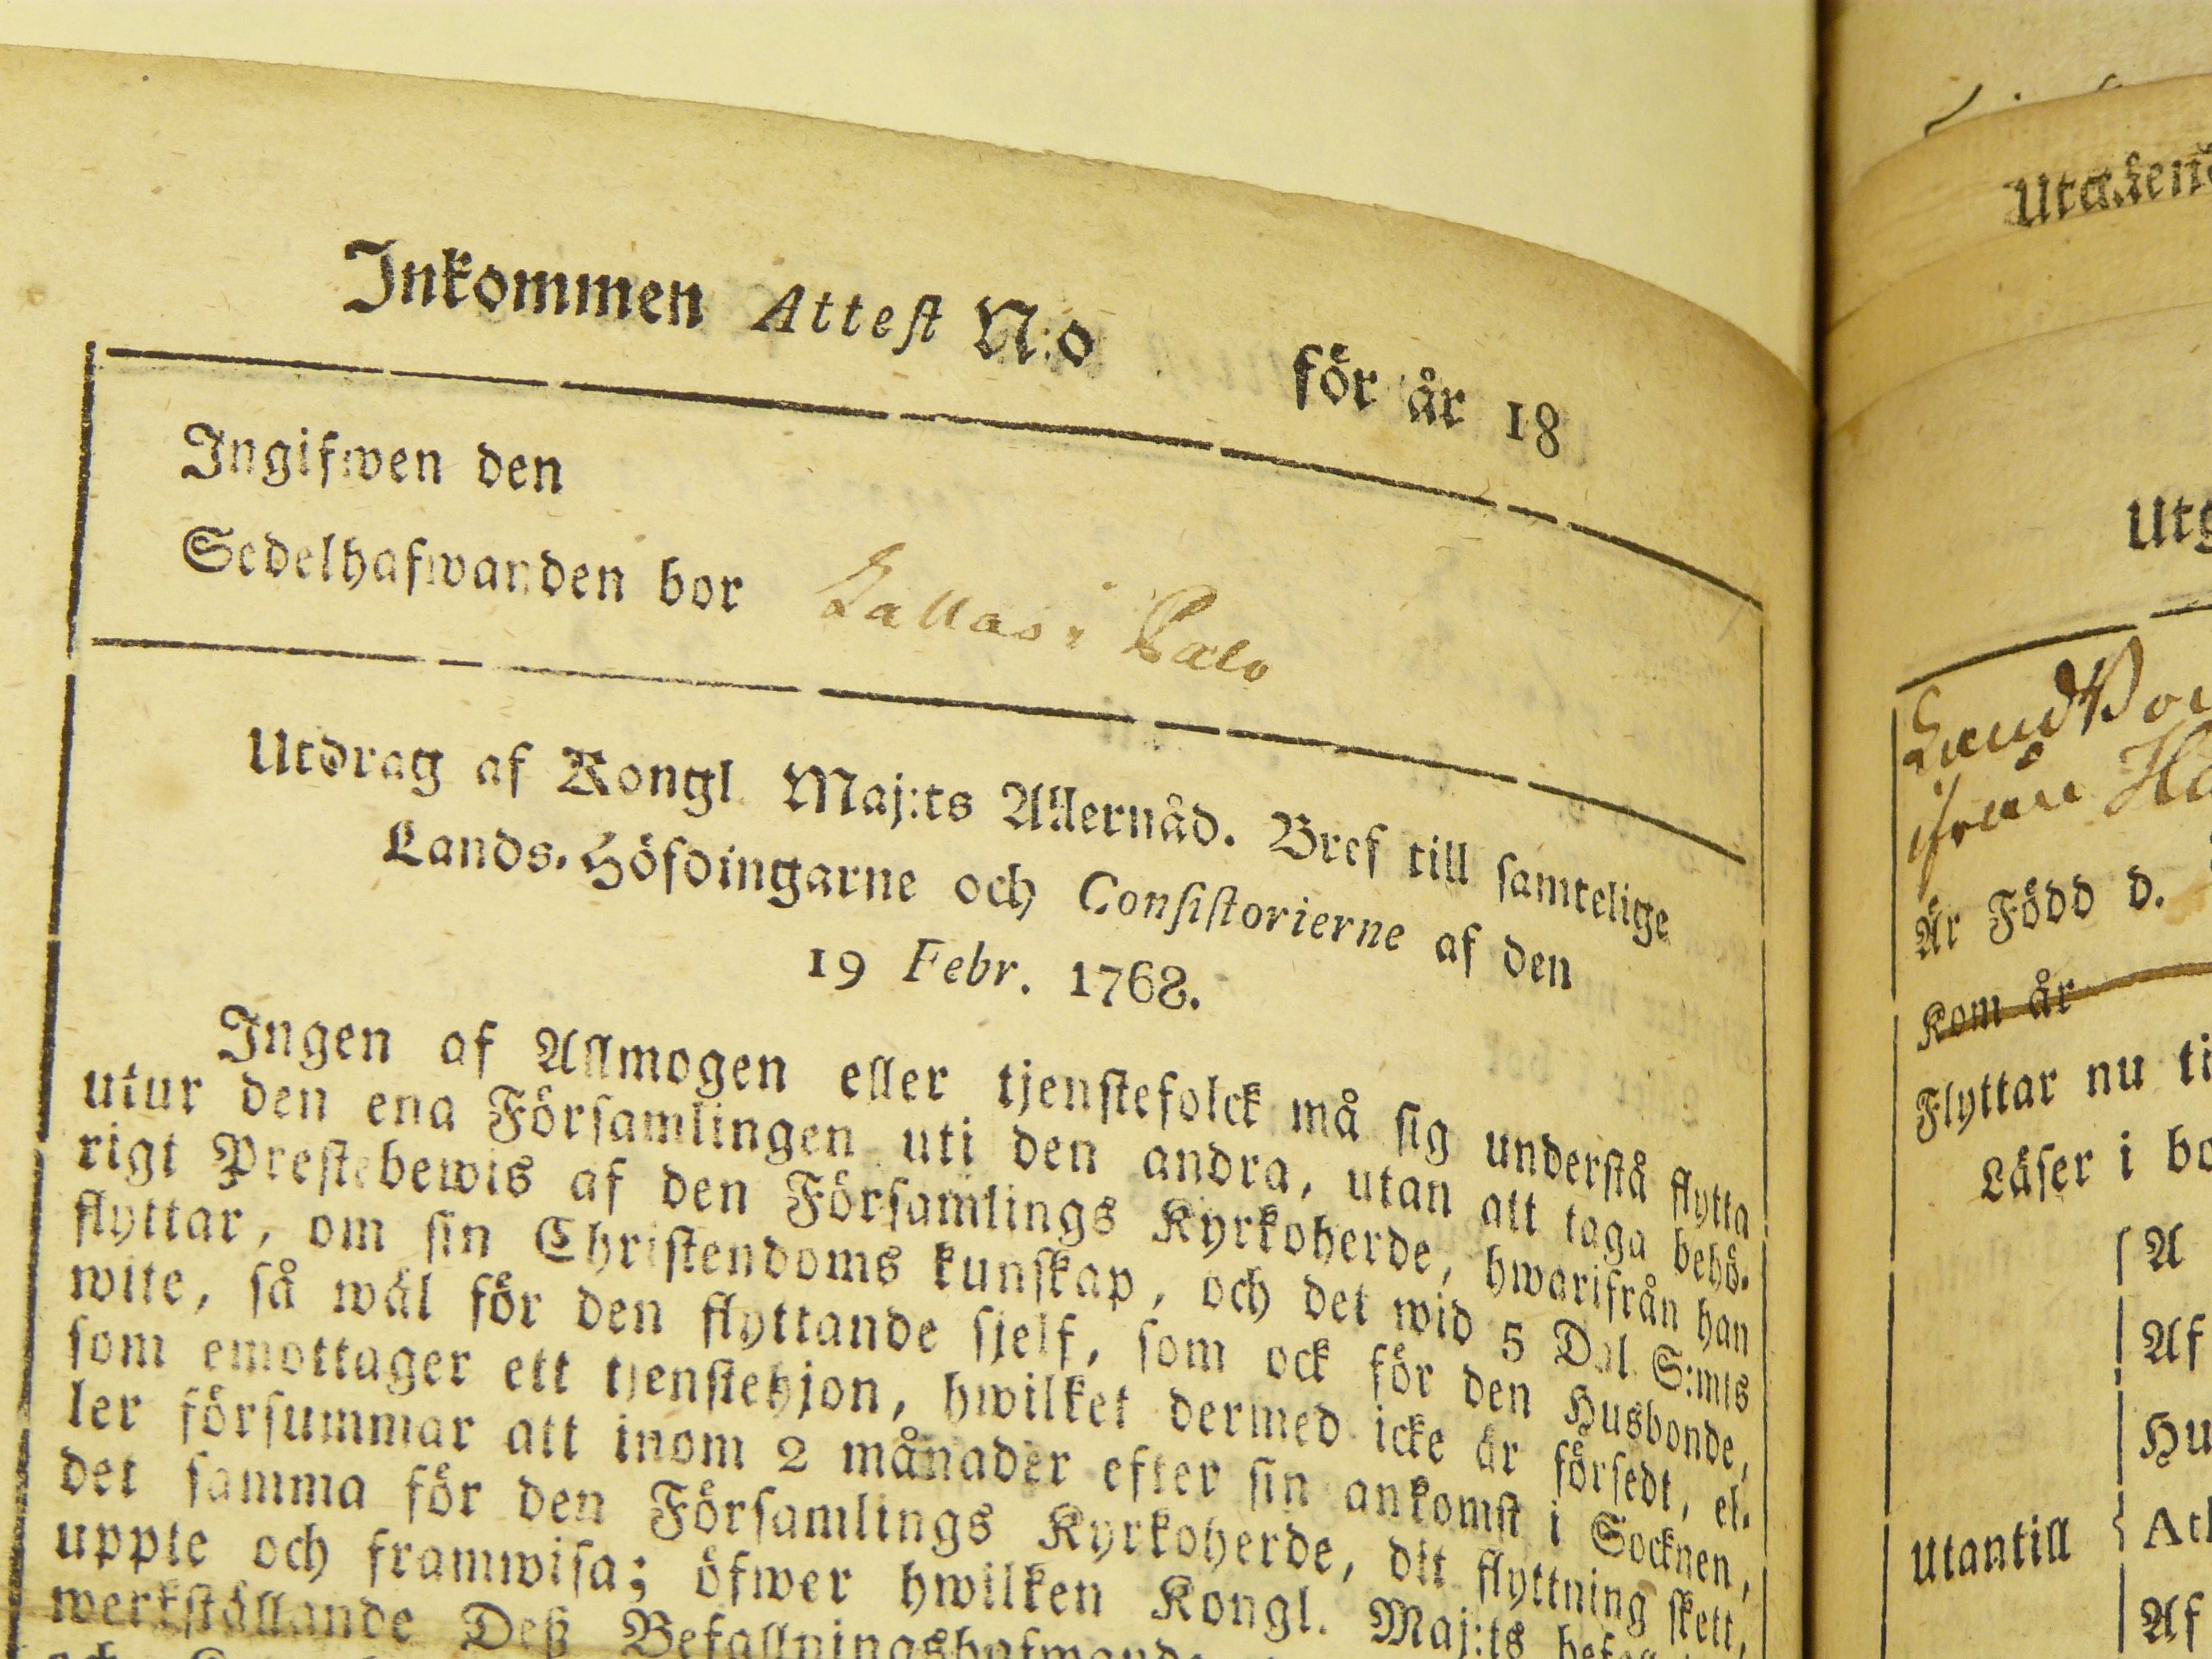 Inkommen Attest N:o för år 18
Ingifwen den
Sedelhafwanden bor
Utdrag af Kongl. Maj:ts Allernåd. Bref till samtelige
Lands-Höfdingarne och Consistorierne af den
19 Febr. 1768.
Ingen af Allmogen eller tjenstefolck må sig understå flytta
utur den ena Församlingen uti den andra, utan att taga behö-
rigt Prestebewis af den Församlings Kyrkoherde, hwarifrån han
flyttar, om sin Christendoms kunskap, och det wid 5 Dal. S:mts
wite, så wäl för den flyttande sjelf, som ock för den Husbonde,
som emottager ett tjenstehjon, hwilket dermed icke är försedt, el-
ler försummar att inom 2 månader efter sin ankomst i Socknen,
det samma för den Församlings Kyrkoherde, dit flyttning skett,
uppte och framwisa; öfwer hwilken Kongl. Maj:ts
werkställande Deß
Är Född d.
Kom år
Flyttar nu
Läser i
A
Af
Utantill
Af